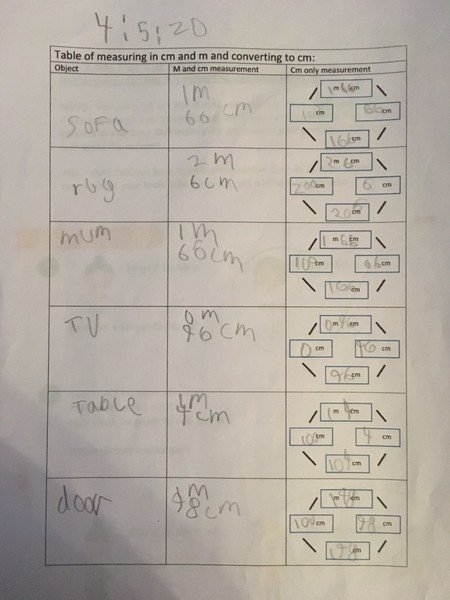 4;5;20
Table of measuring in cm and m and converting to cm:
Object M and cm measurement Cm only measurement
sofa
1m
66 cm
1 m 66 cm
100 cm 66 cm
166 cm
rug
2 m
6cm
2 m 6 cm
200 cm 6 cm
206 cm
mum
1m
66cm
1 m 66 cm
100 cm 66 cm
166 cm
TV
0m
96cm
0 m 96 cm
0 cm 96 cm
96 cm
Table
1m
4cm
1 m 4 cm
100 cm 4 cm
104 cm
door
1m
98cm
1 m 98 cm
100 cm 98 cm
198 cm